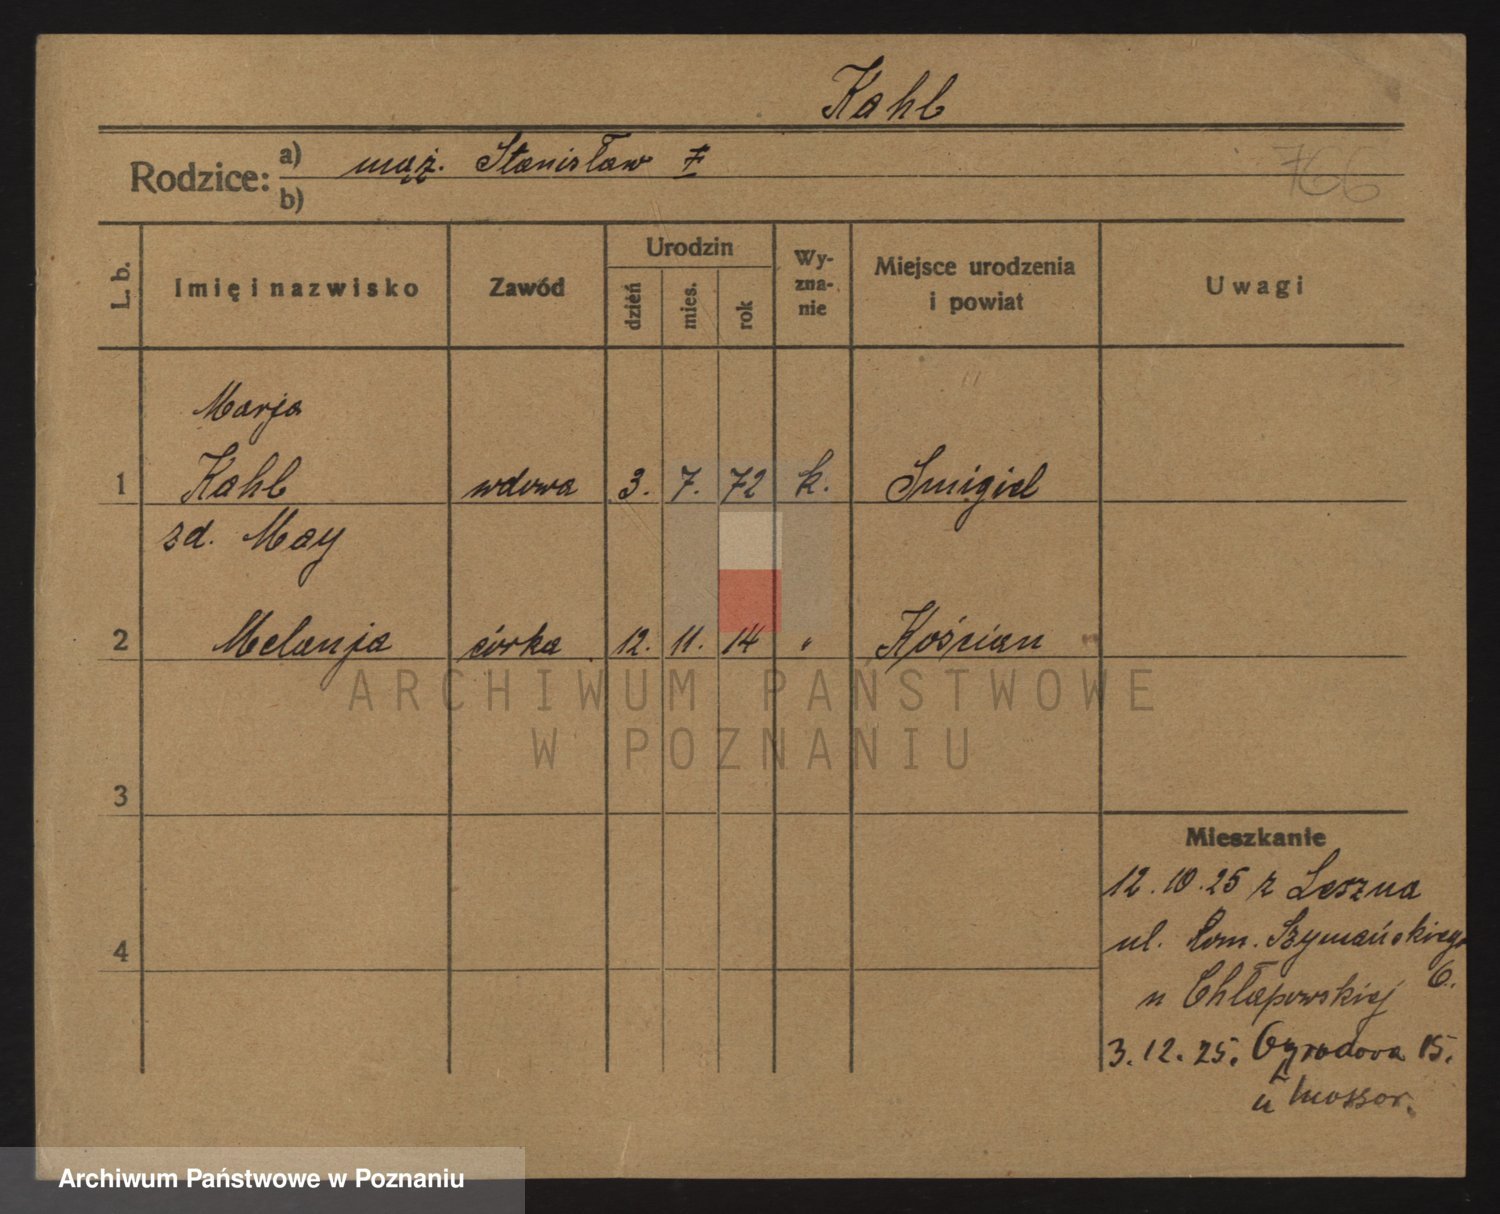 Kahl
Rodzice: a) mąż. Stanisław
b)
766
L. b. Imię i nazwisko Zawód Urodzin dzień mies. rok Wyznanie Miejsce urodzenia i powiat Uwagi
Marja
1 Kahl wdowa 3. 7. 72 k. Smigiel
zd. May
2 Melanja córka 12. 11. 14 " Kościan
ARCHIWUM PAŃSTWOWE
W POZNANIU
3
Mieszkanie
12.10.25 z Leszna
ul. Rom. Szymańskiego
4
6.
u Chłapowskiej
3.12.25. Ogrodowa 15.
u
Archiwum Państwowe w Poznaniu